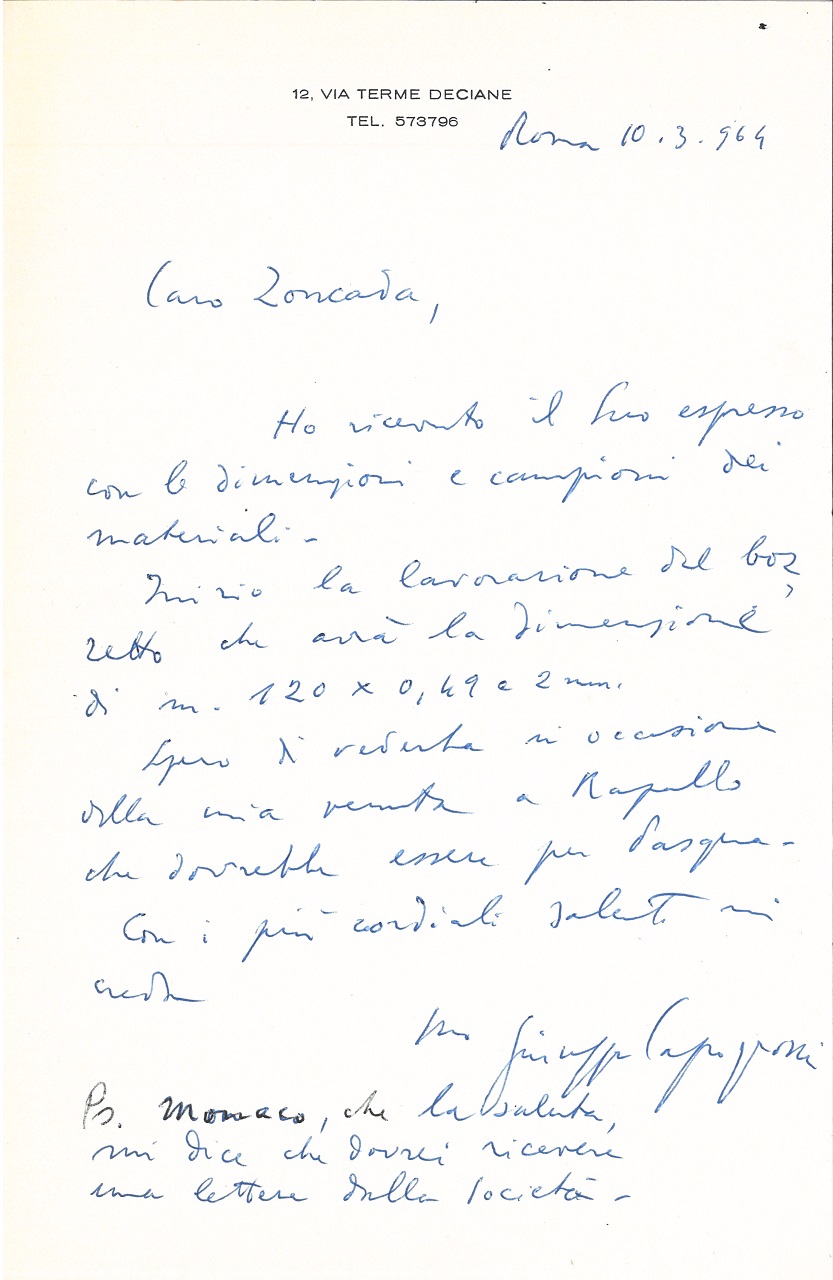 12, VIA TERME DECIANE
TEL. 573796
Roma 10.3.964
Caro Zoncada,
Ho ricevuto il Suo espresso
con le dimensioni e campioni dei
materiali -
Inizio la lavorazione del boz,
zetto che avrà la dimensione
di m. 120 x 0,49 e 2 mm.
Spero di vederla in occasione
della mia venuta a Rapallo
che dovrebbe essere per Pasqua -
Con i più cordiali saluti mi
creda
Suo Giuseppe Capogrossi
Ps. Monaco, che la saluta,
mi dice che dovrei ricevere
una lettera dalla Società -